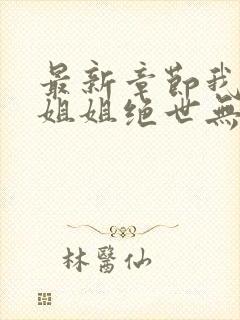 最新章節我
姐姐绝世無
林醫仙